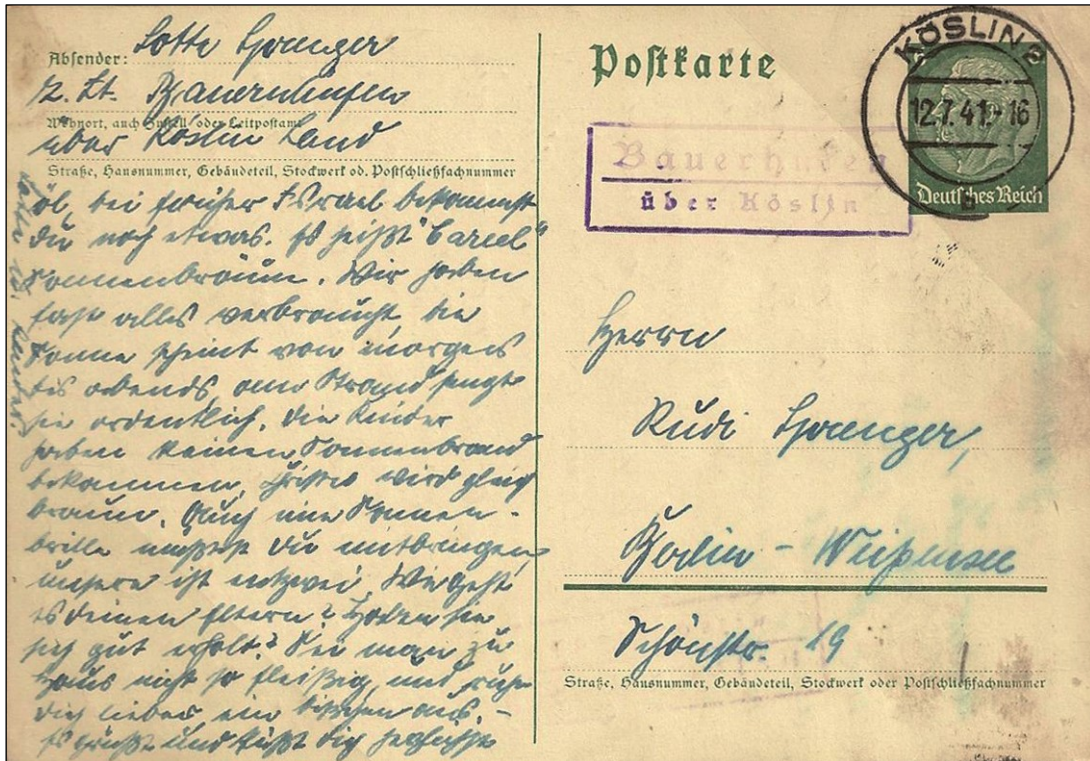 Absender: Lotte Sprenger
z. Zt. Bauernhufen
Wohnort, auch Zustell- oder Leitpostamt
über Köslin Land
Straße, Hausnummer, Gebäudeteil, Stockwerk od. Postschließfachnummer
öl, bei früher Israel bekommst
du noch etwas. Es heißt
Sonnenbräun. Wir haben
fast alles verbraucht, die
Sonne scheint von morgens
bis abends, am Strand sengt
sie ordentlich. Die Kinder
haben keinen Sonnenbrand
bekommen, wird gleich
braun. Auch eine Sonnen-
brille müßtest du mitbringen,
unsere ist entzwei. Wie geht
es deinen Eltern? Haben sie
sich gut erholt? Sei man zu
Haus nicht so fleißig, und ruhe
dich lieber ein bißchen aus. –
Es grüßt und küßt dich herzlichst
Postkarte
KÖSLIN
12.7.41.-16
Deutsches Reich
Bauerhufen
über Köslin
Herrn
Rudi Sprenger,
Berlin - Weißensee
Schönstr. 19
Straße, Hausnummer, Gebäudeteil, Stockwerk oder Postschließfachnummer